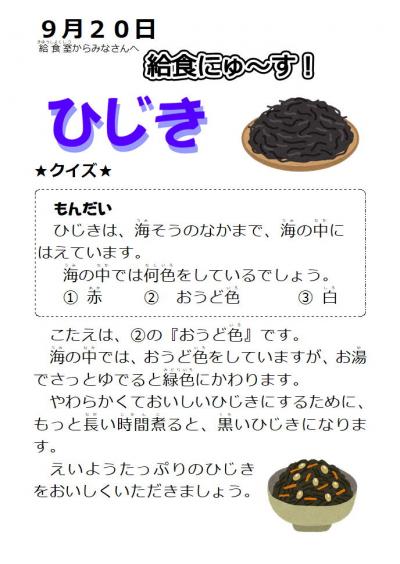 ９月２０日
給食室からみなさんへ
給食にゅ～す！
ひじき
★クイズ★
もんだい
ひじきは、海そうのなかまで、海の中に
はえています。
海の中では何色をしているでしょう。
① 赤　② おうど色　③ 白
こたえは、②の『おうど色』です。
海の中では、おうど色をしていますが、お湯
でさっとゆでると緑色にかわります。
やわらかくておいしいひじきにするために、
もっと長い時間煮ると、黒いひじきになりま
す。
えいようたっぷりのひじき
をおいしくいただきましょう。